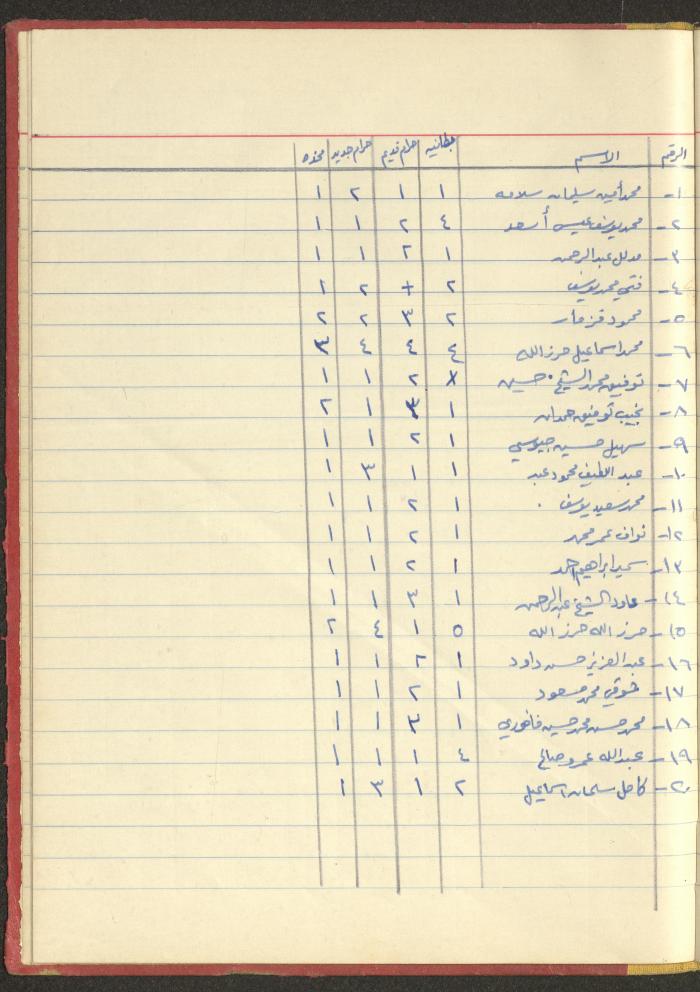 الرقم الاسم بطانيه حرام قديم حرام جديد مخده
١- محمد أمين سليمان سلامه ١ ١ ٢ ١
٢- محمد يوسف عيسى أسعد ٤ ٢ ١ ١
٣- مدلل عبد الرحمن ١ ٢ ١ ١
٤- فتحي محمد يوسف ٢ + ٢ ٢
٥- محمود قزمار ٢ ٣ ٢ ٢
٦- محمد اسماعيل حرزالله ٤ ٤ ٤ ٣
٧- توفيق محمد الشيخ حسين ٢ ١ ١
٨- نجيب توفيق حمدان ١ ٣ ١ ٢
٩- سهيل حسين جيوسي ١ ٢ ١ ١
١٠- عبد اللطيف محمود عبد ١ ١ ٣ ١
١١- محمد سعيد يوسف ١ ٢ ١ ١
١٢- نواف عمر محمد ١ ٢ ١ ١
١٣- سمير ابراهيم احمد ١ ٢ ١ ١
١٤- عاود الشيخ عبد الرحمن ١ ٣ ١ ١
١٥- حرز الله حرز الله ٥ ١ ٤ ٢
١٦- عبد العزيز حسن داود ١ ٢ ١ ١
١٧- شوقي محمد مسعود ١ ٢ ١ ١
١٨- محمد حسن محمد حسين فاخوري ١ ٣ ١ ١
١٩- عبدالله عمر و صالح ٤ ١ ١ ١
٢٠- كامل سلمان اسماعيل ٢ ١ ٣ ١